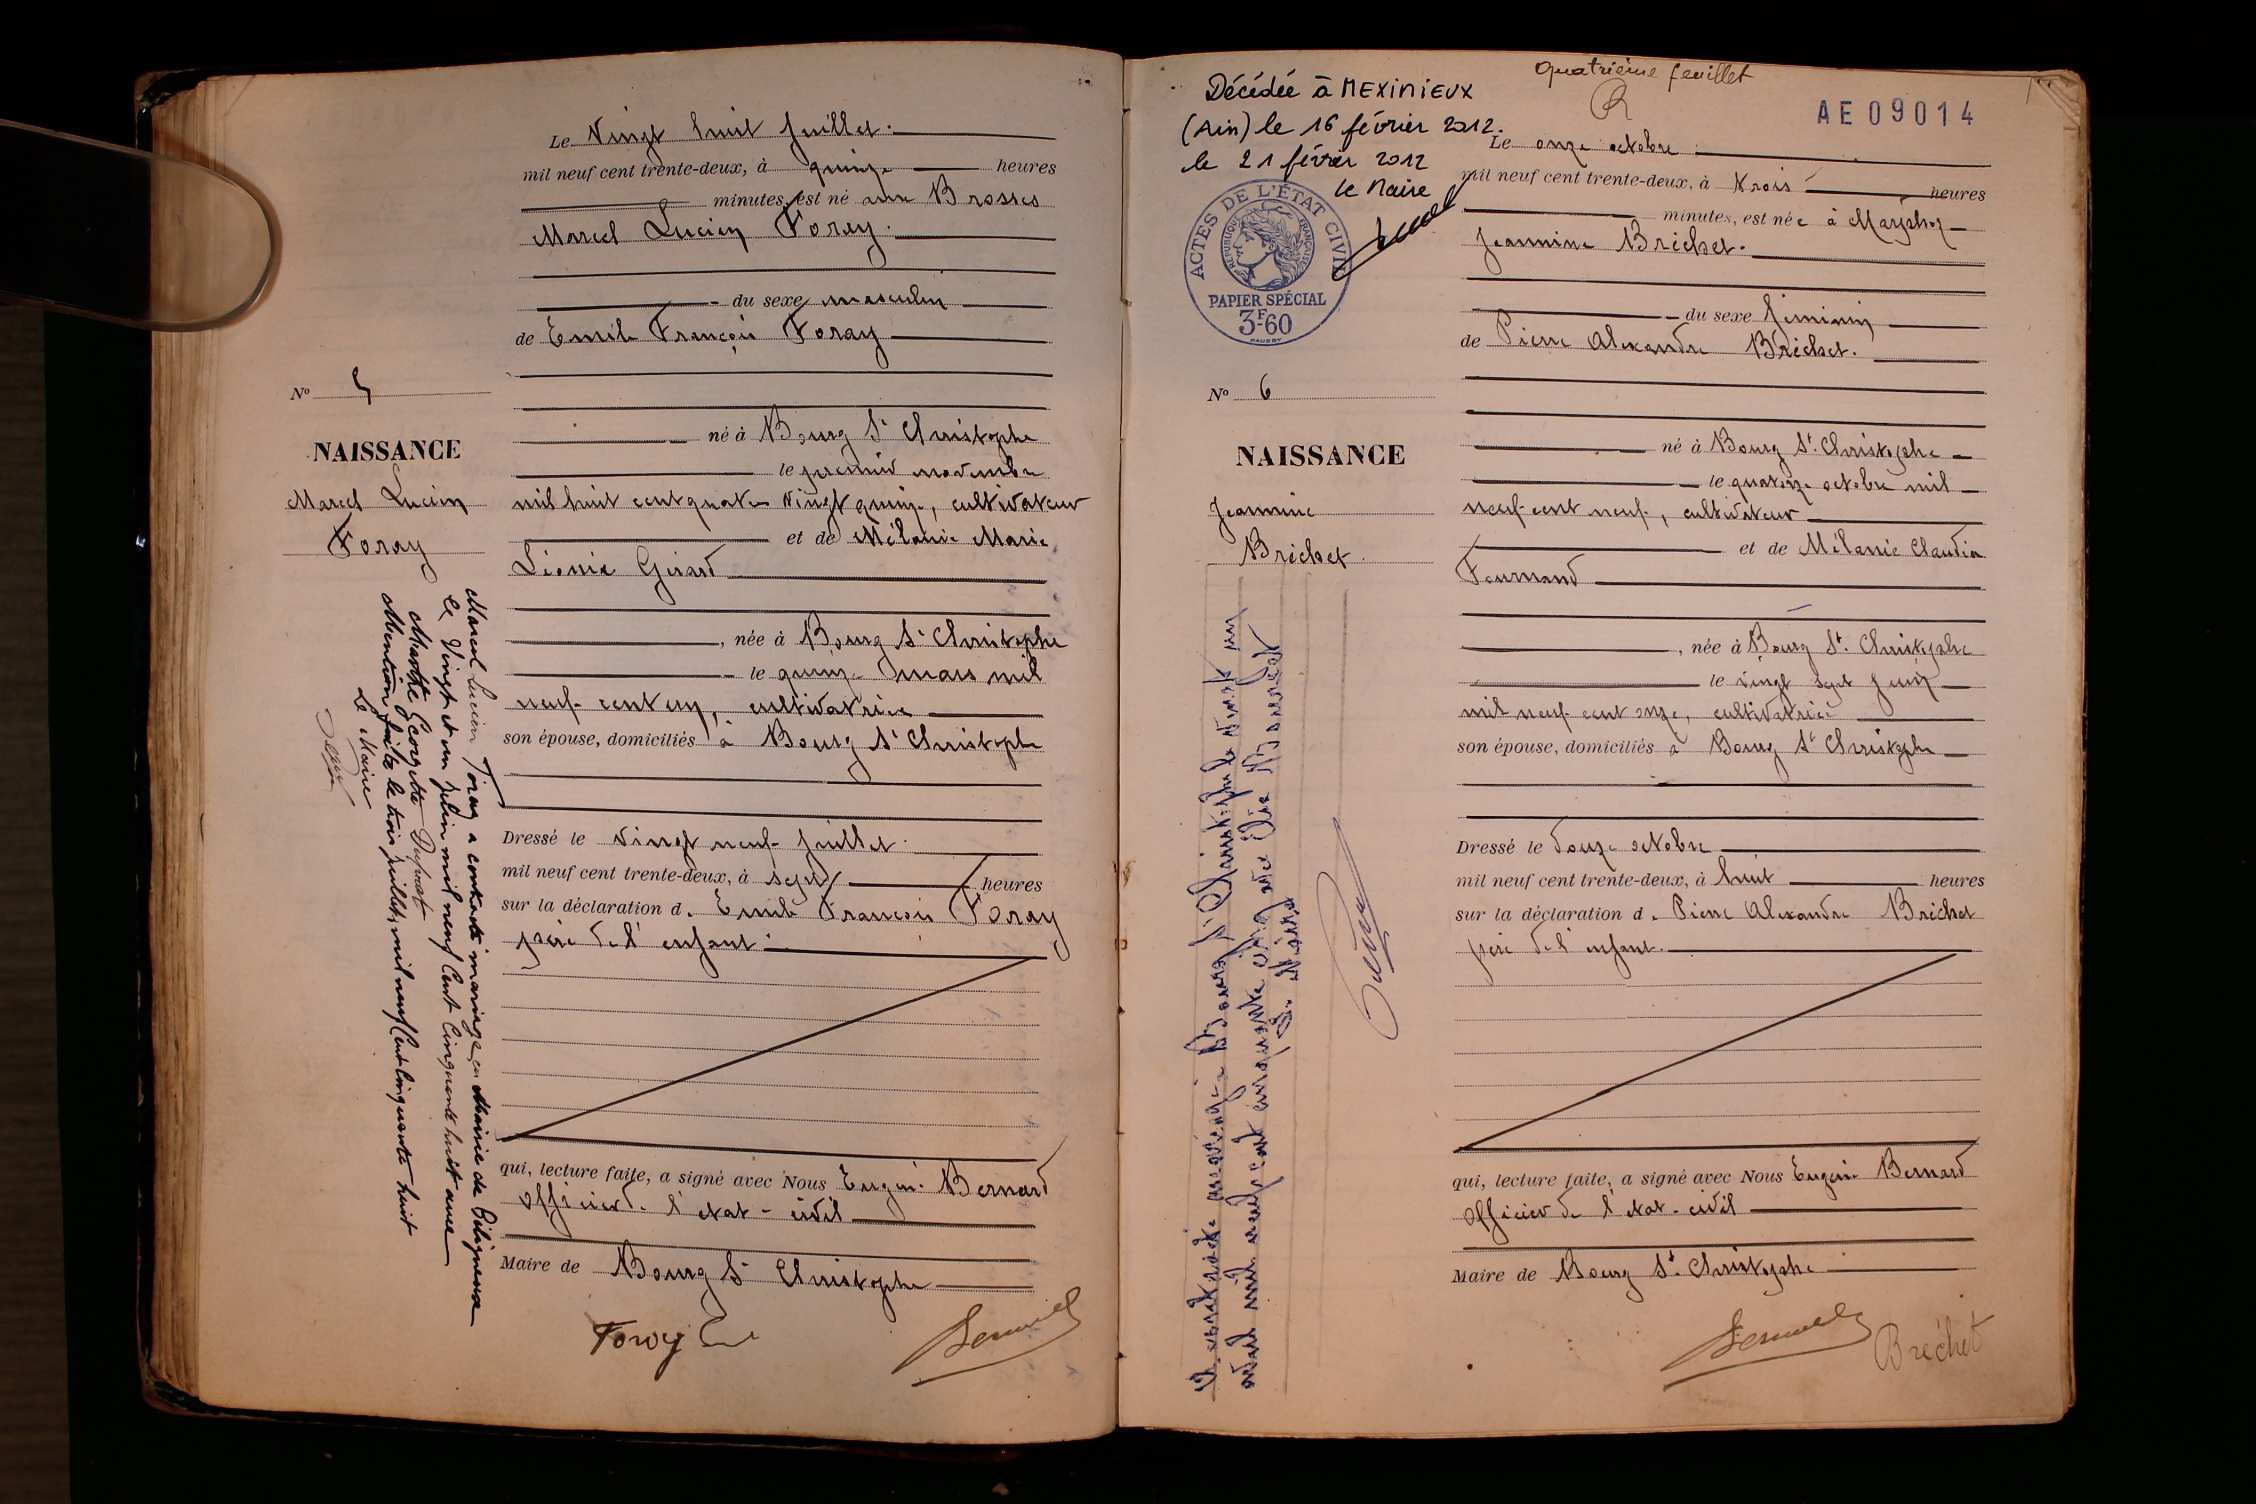 Le Vingt huit Juillet.
mil neuf cent trente-deux, à quinze heures
minutes, est né aux Brosses
Marcel Lucien Foray.
du sexe masculin
de Emile François Foray
né à Bourg St Christophe
le premier novembre
mil huit cent quatre vingt quinze, cultivateur
et de Mélanie Marie
Léonie Girard
, née à Bourg St Christophe
le quinze mars mil
neuf cent un, cultivatrice
son épouse, domiciliés à Bourg St Christophe
Dressé le vingt neuf juillet
mil neuf cent trente-deux, à sept heures
sur la déclaration d. Emile François Foray
père de l'enfant.
qui, lecture faite, a signé avec Nous Eugène Bernard
officier de l'état-civil
Maire de Bourg St Christophe
Foray
Bernard
No 5
NAISSANCE
Marcel Lucien
Foray
Marcel Lucien Foray a contracté mariage en Mairie de
le Vingt et un juin mil neuf Cent Cinquante huit avec
Georgette
Mention faite le trois juillet mil neuf Cent Cinquante huit
Le Maire
Décédée à MEXIMIEUX
(Ain) le 16 février 2012.
le 21 février 2012
le Maire
ACTES DE L'ÉTAT CIVIL
RÉPUBLIQUE FRANÇAISE
PAPIER SPÉCIAL
3F60
No 6
NAISSANCE
Jeannine
Bréchet
a contracté mariage à Bourg St Christophe le vingt un
août mil neuf cent cinquante cinq avec Elie
Le Maire
Quatrième feuillet
AE09014
Le onze octobre
mil neuf cent trente-deux, à trois heures
minutes, est née à
Jeannine Bréchet.
du sexe féminin
de Pierre Alexandre Bréchet.
né à Bourg St. Christophe
le quatorze octobre mil
neuf cent neuf, cultivateur
et de Mélanie Claudia
, née à Bourg St. Christophe
le vingt sept juin
mil neuf cent onze, cultivatrice
son épouse, domiciliés à Bourg St Christophe
Dressé le douze octobre
mil neuf cent trente-deux, à huit heures
sur la déclaration d. Pierre Alexandre Bréchet
père de l'enfant.
qui, lecture faite, a signé avec Nous Eugène Bernard
officier de l'état-civil
Maire de Bourg St. Christophe
Bernard
Bréchet